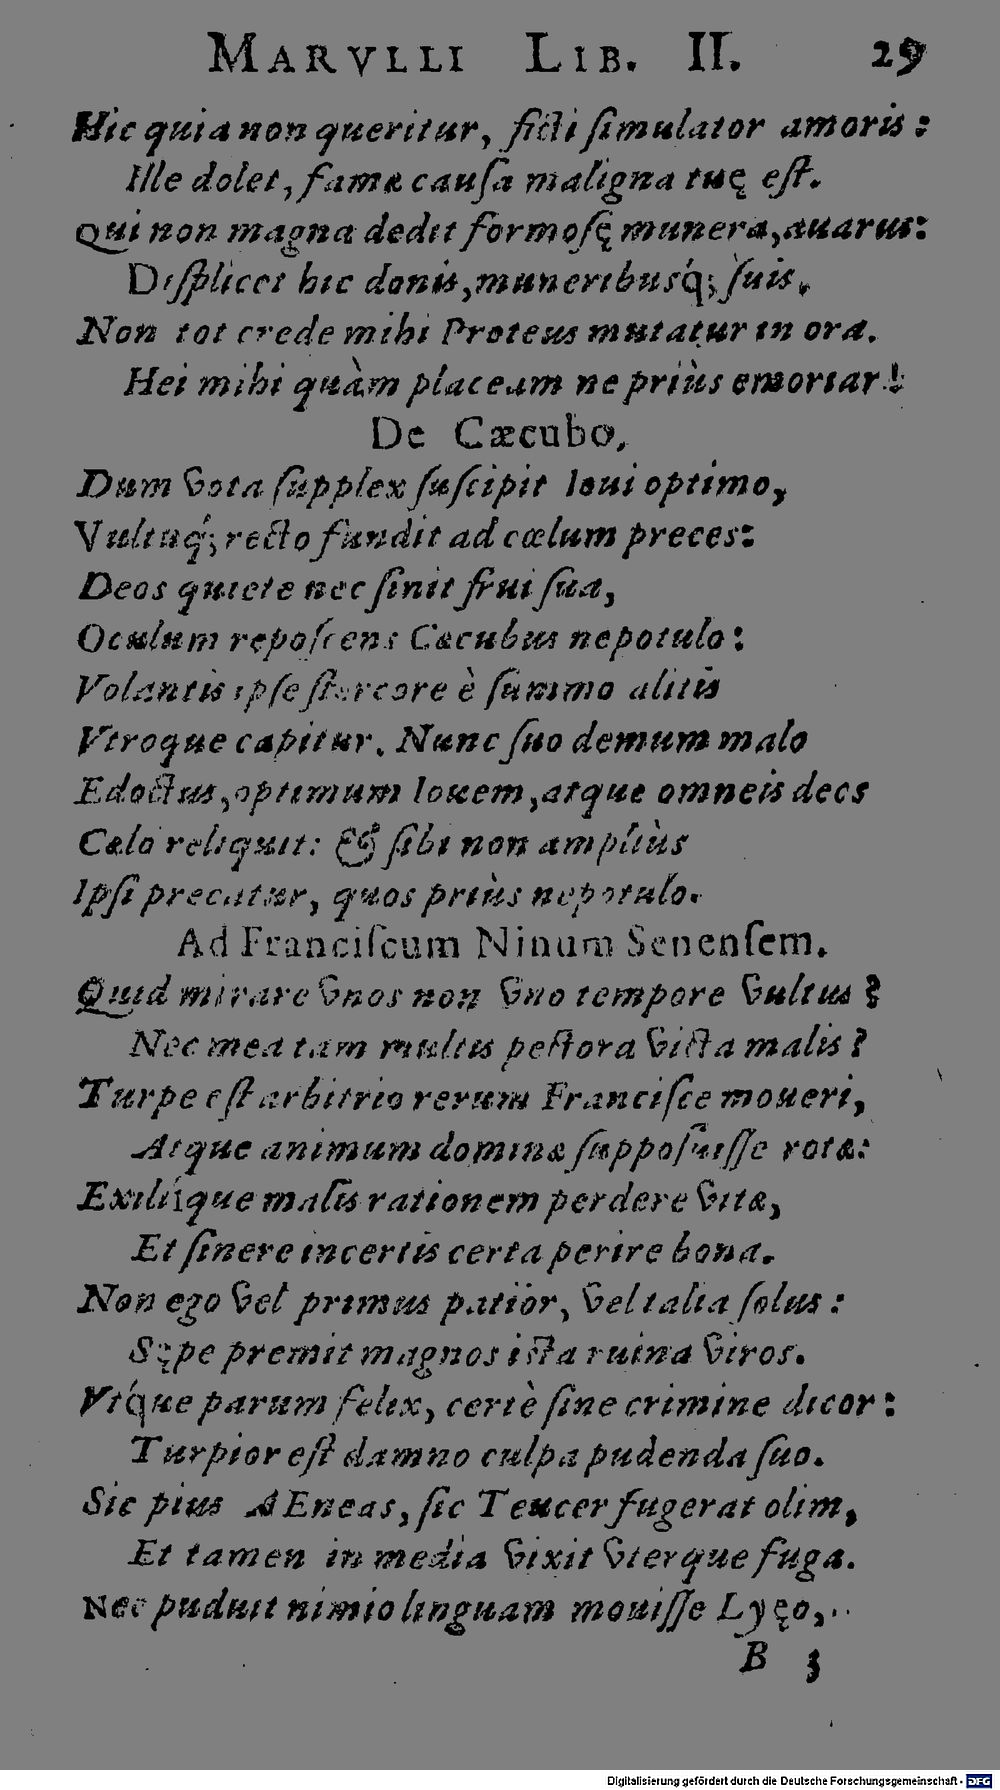 MARVLLI LIB. II. 29
Hic quia non queritur, ficti ſimulator amoris:
Ille dolet, famæ cauſa maligna tuę eſt.
Qui non magna dedit formoſę munera, auarus:
Diſplicet hic donis, muneribusq́; ſuis.
Non tot crede mihi Proteus mutatur in ora.
Hei mihi quàm placeam ne priùs emoriar!
De Cæcubo.
Dum vota ſupplex ſuſcipit Ioui optimo,
Vultuq́; recto fundit ad cœlum preces:
Deos quiete nec ſinit frui ſua,
Oculum repoſcens Cæcubus nepotulo:
Volantis ipſe ſtercore è ſummo alitis
Vtroque capitur. Nunc ſuo demum malo
Edoctus, optimum Iouem, atque omneis deos
Cælo reliquit: & ſibi non ampliùs
Ipſi precatur, quos priùs nepotulo.
Ad Franciſcum Ninum Senenſem.
Quid mirare vnos non vno tempore vultus?
Nec mea tam multis pectora victa malis?
Turpe eſt arbitrio rerum Franciſce moueri,
Atque animum dominæ ſuppoſuiſſe rotæ:
Exilíque malis rationem perdere vitæ,
Et ſinere incertis certa perire bona.
Non ego vel primus patior, vel talia ſolus:
Sępe premit magnos iſta ruina viros.
Vtq́ue parum felix, certè ſine crimine dicor:
Turpior eſt damno culpa pudenda ſuo.
Sic pius AEneas, ſic Teucer fugerat olim,
Et tamen in media vixit vterque fuga.
Nec puduit nimio linguam mouiſſe Lyęo,
B 3
Digitalisierung gefördert durch die Deutsche Forschungsgemeinschaft - DFG